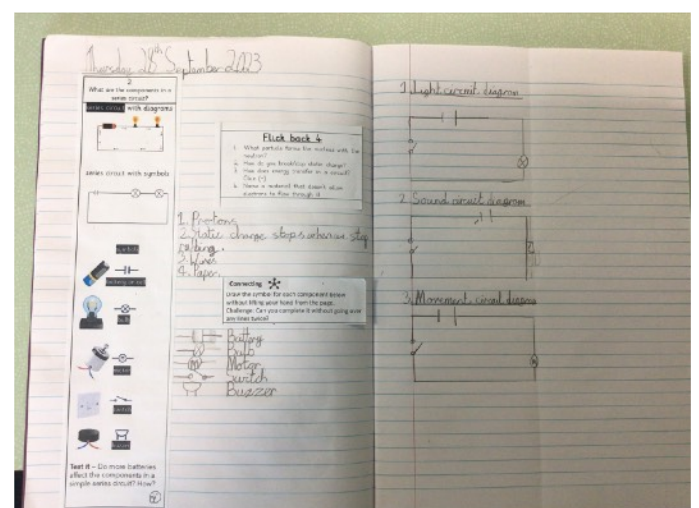 Thursday 28th September 2023
2
What are the components in a
series circuit?
series circuit with diagrams
series circuit with symbols
symbols
bulb
motor
switch
buzzer
Test it – Do more batteries
affect the components in a
simple series circuit? How?
Flick back 4
1. What particle forms the nucleus with the
neutron?
2. How do you static charge?
3. How does energy transfer in a circuit?
4. Name a material that doesn't allow
electrons to flow through it.
1. Protons
2. Static charge stops when stop
rubbing.
3. Wires
4. Paper
Connecting
Draw the symbol for each component below
without lifting your hand from the page.
Challenge: Can you complete it without going over
any lines twice?
Battery
Bulb
M Motor
Switch
Buzzer
1 Light circuit diagram
2. Sound circuit diagram
3. Movement circuit diagram